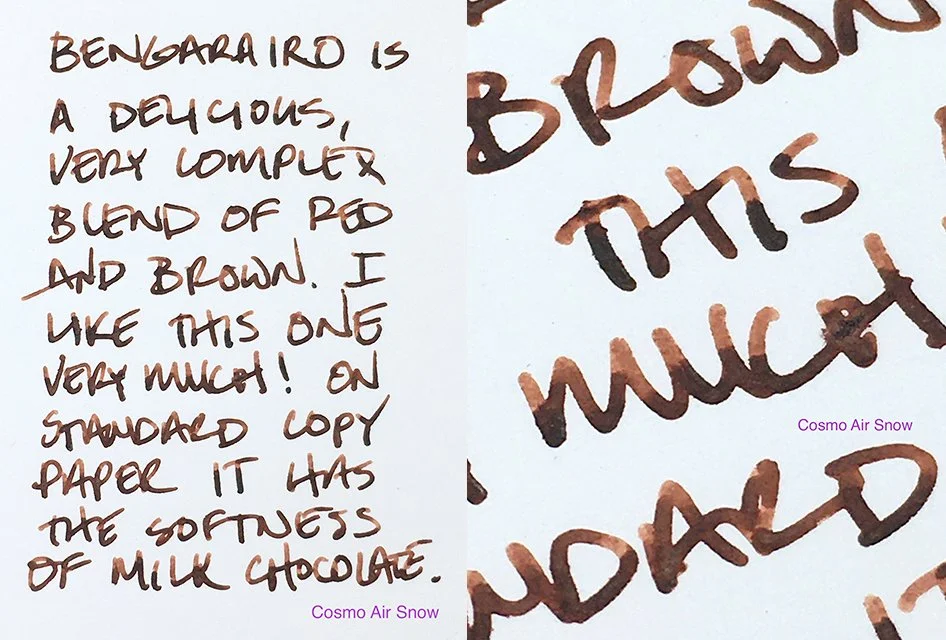 BENGARAIRO IS
A DELICIOUS,
VERY COMPLEX
BLEND OF RED
AND BROWN. I
LIKE THIS ONE
VERY MUCH! ON
STANDARD COPY
PAPER IT HAS
THE SOFTNESS
OF MILK CHOCOLATE.
Cosmo Air Snow
BROWN
THIS
MUCH
Cosmo Air Snow
NDARD
IT